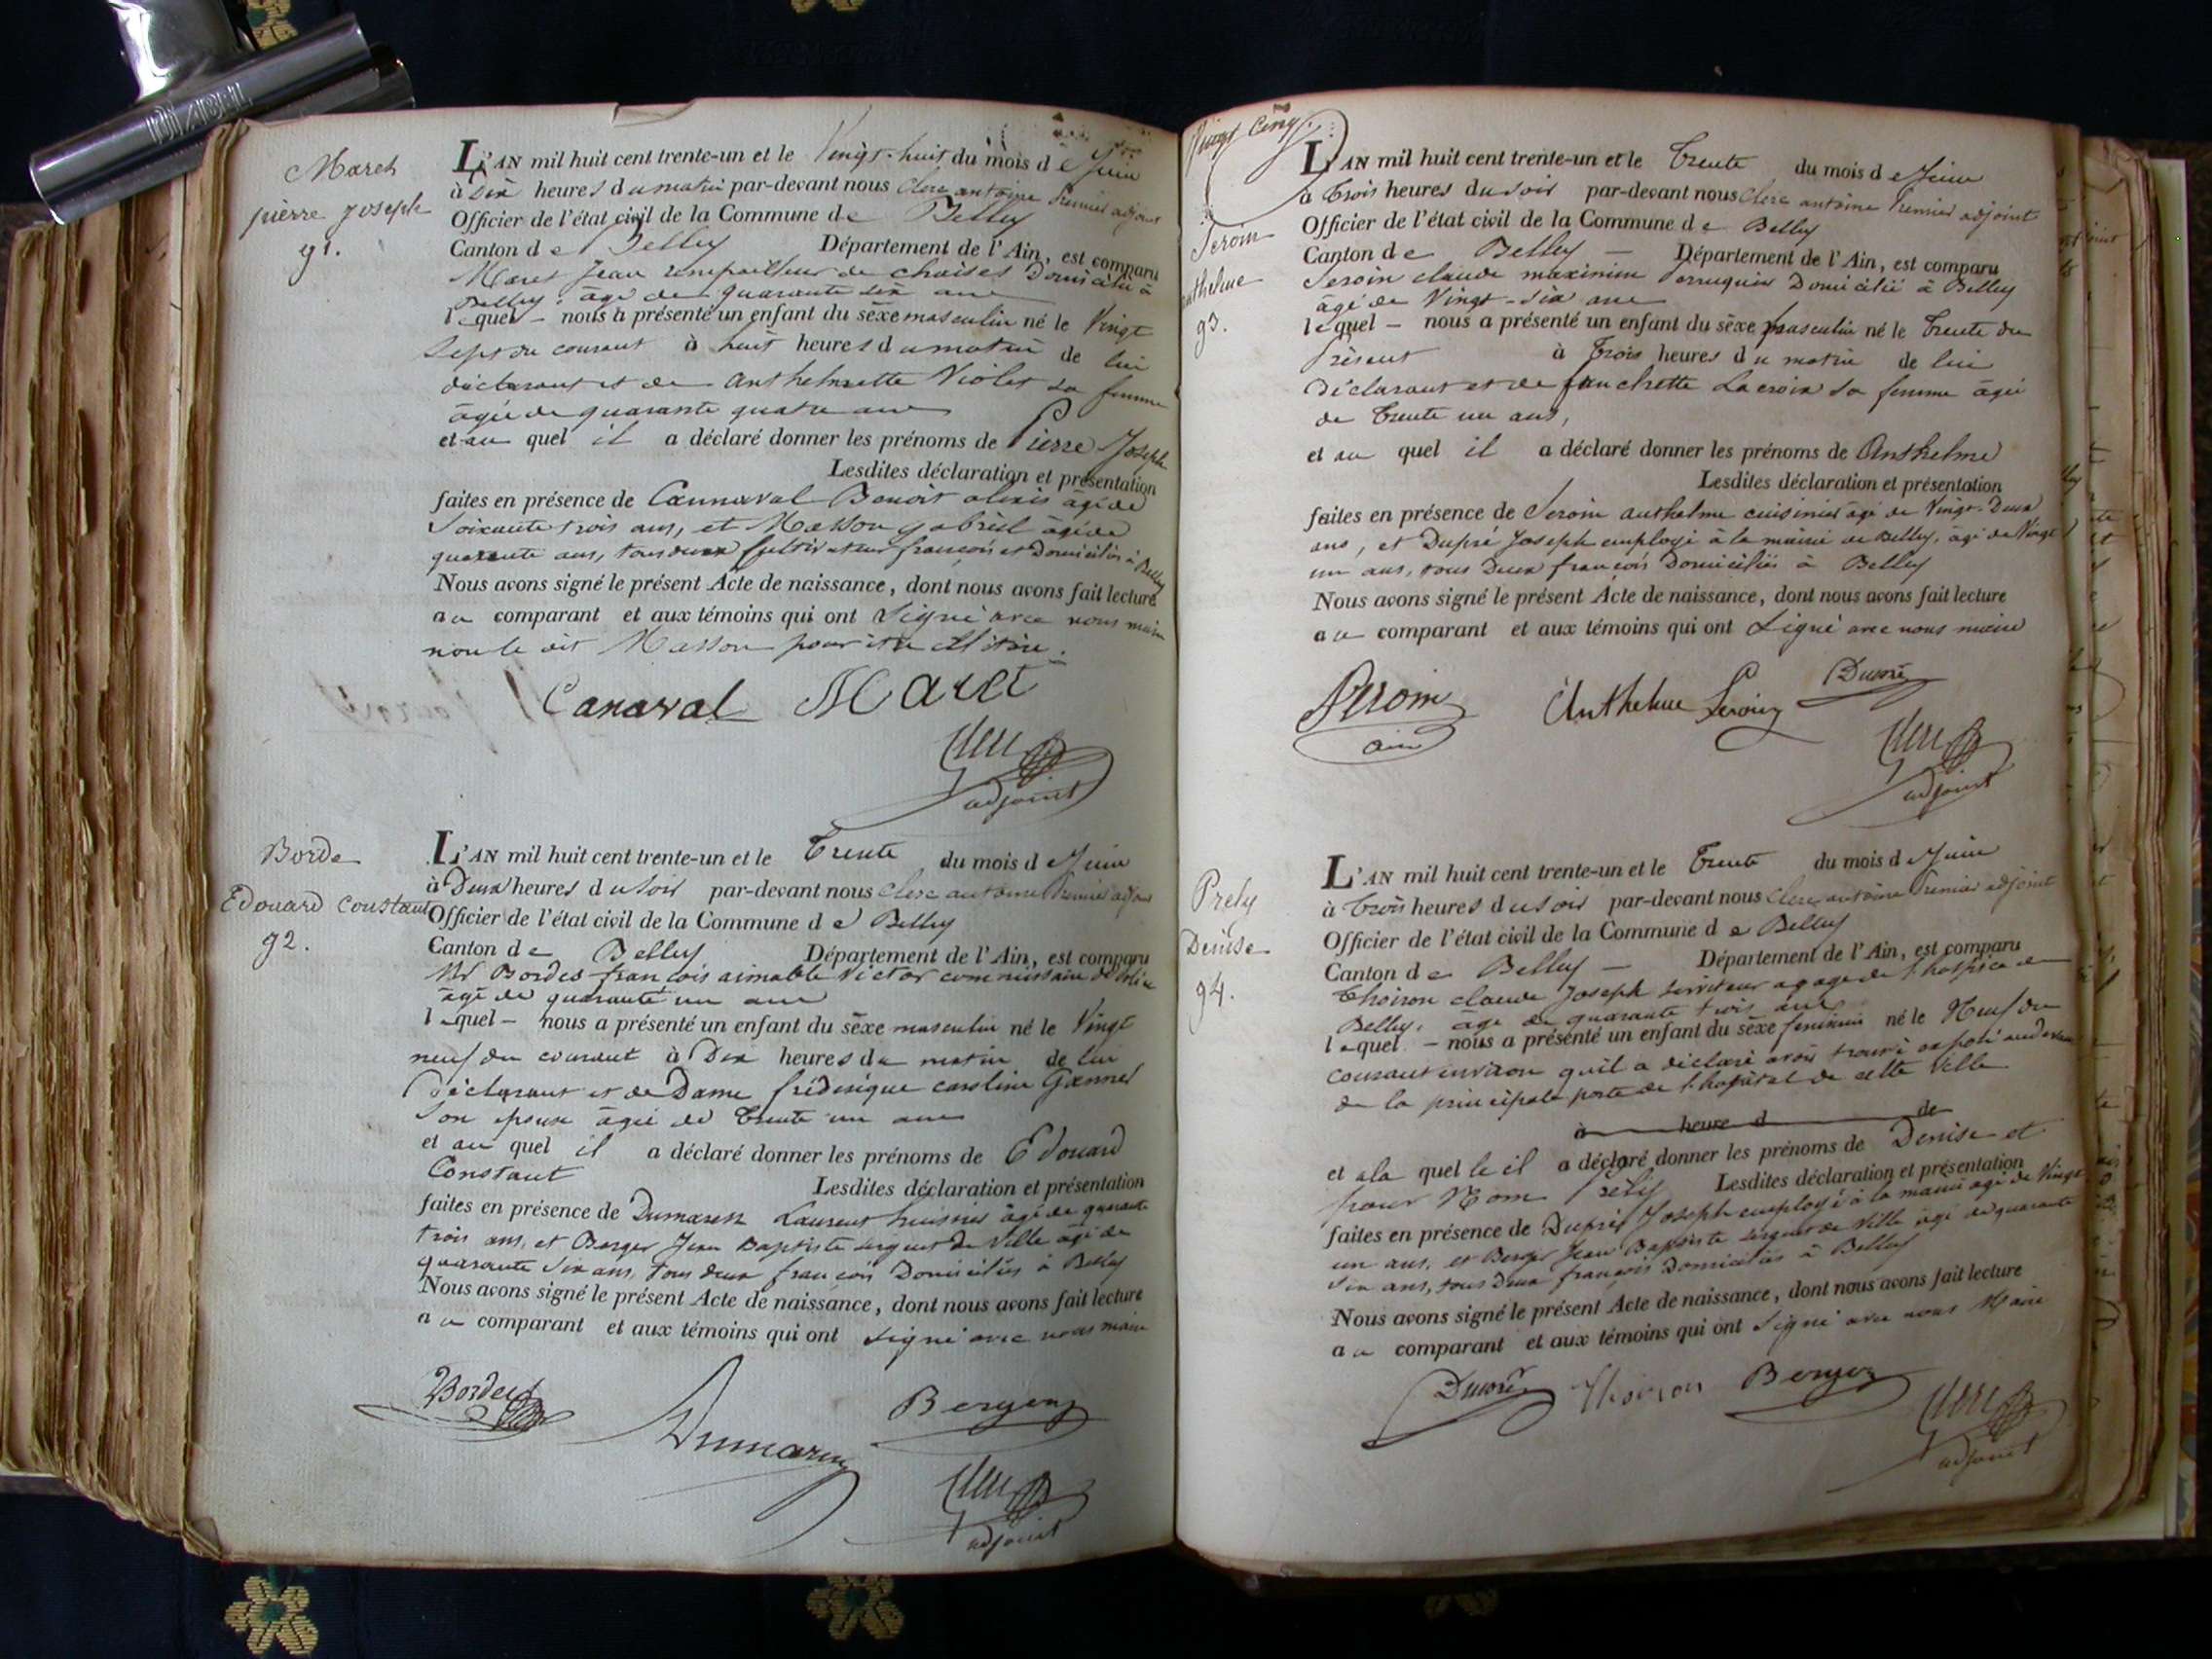 March
pierre Joseph
91.
L'AN mil huit cent trente-un et le Vingt-huit du mois de Juin
à dix heures du matin par-devant nous Clerc antoine Premier adjoint
Officier de l'état civil de la Commune de Belley
Canton de Belley Département de l'Ain, est comparu
Maret Jean rempailleur de chaises Domicilié à
Belley, âgé de quarante six ans
lequel – nous a présenté un enfant du sexe masculin né le Vingt
Sept du courant à huit heures du matin de lui
déclarant et de Anthelmette Violet sa femme
âgée de quarante quatre ans
et au quel il a déclaré donner les prénoms de Pierre Joseph
Lesdites déclaration et présentation
faites en présence de Cannaval Benoit alexis âgé de
Soixante trois ans, et Masson gabriel âgé de
quarante ans, tous deux Cultivateur françois et Domiciliés à Belley
Nous avons signé le présent Acte de naissance, dont nous avons fait lecture
au comparant et aux témoins qui ont Signé avec nous maire
non le dit Masson pour être illitéré.
Canaval Maret
Clerc
adjoint
Borde
Edouard Constant
92.
L'AN mil huit cent trente-un et le Trente du mois de Juin
à Deux heures du Soir par-devant nous Clerc antoine Premier adjoint
Officier de l'état civil de la Commune de Belley
Canton de Belley Département de l'Ain, est comparu
Mr Bordes françois aimable Victor commissaire de Police
âgé de quarante un ans
lequel – nous a présenté un enfant du sexe masculin né le Vingt
neuf du courant à Dix heures du matin de lui
Déclarant et de Dame frédérique caroline Gannel
Son epouse âgée de Trente un ans
et au quel il a déclaré donner les prénoms de Edouard
Constant
Lesdites déclaration et présentation
faites en présence de Dumarest Laurent huissier âgé de quarante
trois ans, et Berger Jean Baptiste sergent de Ville âgé de
quarante Six ans, tous deux françois Domiciliés à Belley
Nous avons signé le présent Acte de naissance, dont nous avons fait lecture
au comparant et aux témoins qui ont signé avec nous maire
Bordes
Dumarest
Berger
Clerc
adjoint
Vingt Cinq.
Seroin
anthelme
93.
L'AN mil huit cent trente-un et le Trente du mois de Juin
à Trois heures du soir par-devant nous Clerc antoine Premier adjoint
Officier de l'état civil de la Commune de Belley
Canton de Belley – Département de l'Ain, est comparu
Seroin claude maximin Perruquier Domicilié à Belley
âgé de Vingt-Six ans
lequel – nous a présenté un enfant du sexe masculin né le Trente du
Présent à Trois heures du matin de lui
Déclarant et de fanchette Lacroix sa femme âgée
de Trente un ans,
et au quel il a déclaré donner les prénoms de Anthelme
Lesdites déclaration et présentation
faites en présence de Seroin anthelme cuisinier âgé de Vingt-Deux
ans, et Dupré Joseph employé à la mairie de Belley, âgé de Vingt
un ans, tous Deux françois Domiciliés à Belley
Nous avons signé le présent Acte de naissance, dont nous avons fait lecture
au comparant et aux témoins qui ont Signé avec nous maire
Seroin
Anthelme Seroin
Dupré
Clerc
adjoint
Prely
Denise
94.
L'AN mil huit cent trente-un et le Trente du mois de Juin
à Trois heures du soir par-devant nous Clerc antoine Premier adjoint
Officier de l'état civil de la Commune de Belley
Canton de Belley – Département de l'Ain, est comparu
Thoiron claude Joseph Serviteur a gage de l'hospice de
Belley, âgé de quarante trois ans
lequel – nous a présenté un enfant du sexe feminin né le Neuf du
courant environ qu'il a déclaré avoir trouvé exposé audevant
de la principale porte de l'hopital de cette Ville
à heure d de
et à la quel le il a déclaré donner les prénoms de Denise et
pour Nom Prély Lesdites déclaration et présentation
faites en présence de Dupré Joseph employé à la mairie agé de Vingt
un ans, et Berger Jean Baptiste sergent de Ville agé de quarante
Six ans, tous Deux françois Domiciliés à Belley
Nous avons signé le présent Acte de naissance, dont nous avons fait lecture
au comparant et aux témoins qui ont Signé avec nous Maire
Dupré Thoiron Berger
Clerc
adjoint